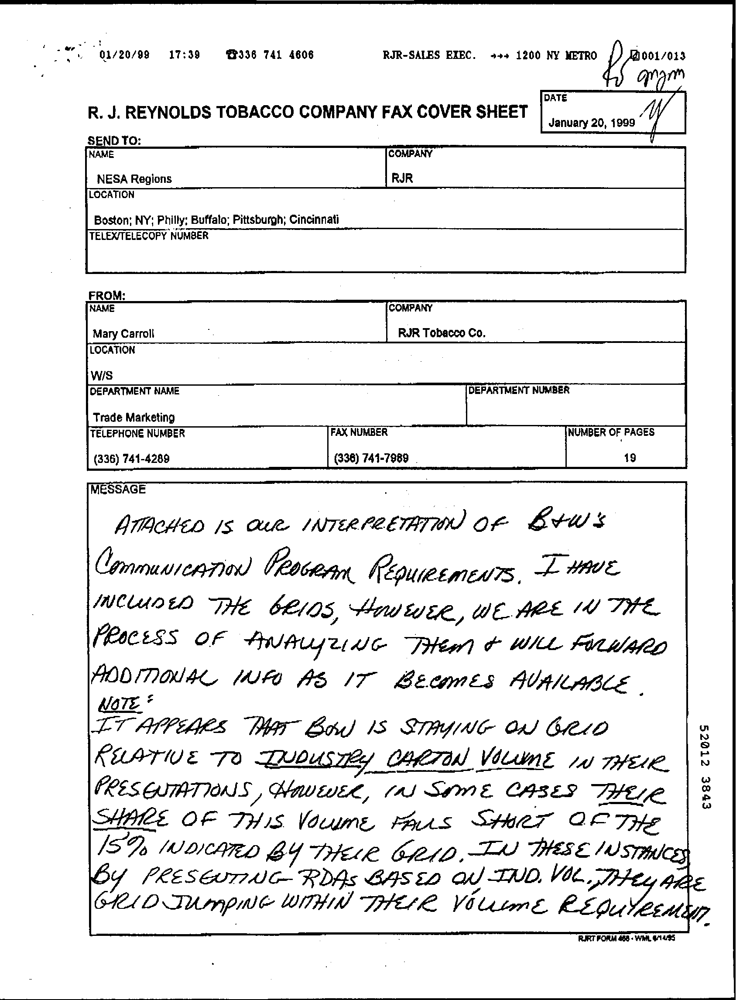 01/20/99 17:39 ☎336 741 4606 RJR-SALES EXEC. →→→ 1200 NY METRO 001/013
R. J. REYNOLDS TOBACCO COMPANY FAX COVER SHEET
DATE
January 20, 1999
SEND TO:
NAME
NESA Regions
COMPANY
RJR
LOCATION
Boston; NY; Philly; Buffalo; Pittsburgh; Cincinnati
TELEX/TELECOPY NUMBER
FROM:
NAME
Mary Carroll
COMPANY
RJR Tobacco Co.
LOCATION
W/S
DEPARTMENT NAME
Trade Marketing
DEPARTMENT NUMBER
TELEPHONE NUMBER
(336) 741-4289
FAX NUMBER
(336) 741-7989
NUMBER OF PAGES
19
MESSAGE
ATTACHED IS OUR INTERPRETATION OF B+W'S
COMMUNICATION PROGRAM REQUIREMENTS. I HAVE
INCLUDED THE GRIDS, HOWEVER, WE ARE IN THE
PROCESS OF ANALYZING THEM & WILL FORWARD
ADDITIONAL INFO AS IT BECOMES AVAILABLE.
NOTE:
IT APPEARS THAT B&W IS STAYING ON GRID
RELATIVE TO INDUSTRY CARTON VOLUME IN THEIR
PRESENTATIONS, HOWEVER, IN SOME CASES THEIR
SHARE OF THIS VOLUME FALLS SHORT OF THE
15% INDICATED BY THEIR GRID. IN THESE INSTANCES,
BY PRESENTING RDAs BASED ON IND. VOL., THEY ARE
GRID JUMPING WITHIN THEIR VOLUME REQUIREMENT.
52012 3843
RJRT FORM 466 - WML 6/14/95